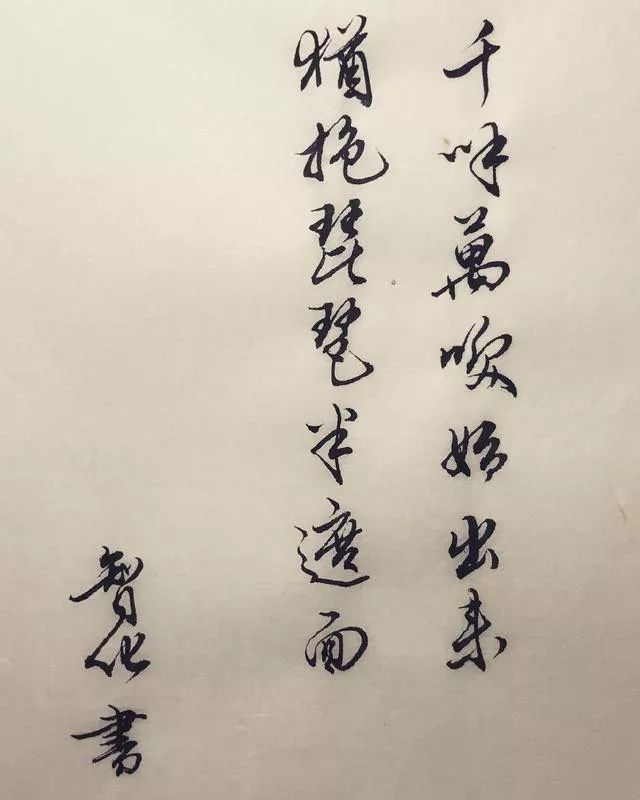 千呼萬喚始出来
猶抱琵琶半遮面
智化書